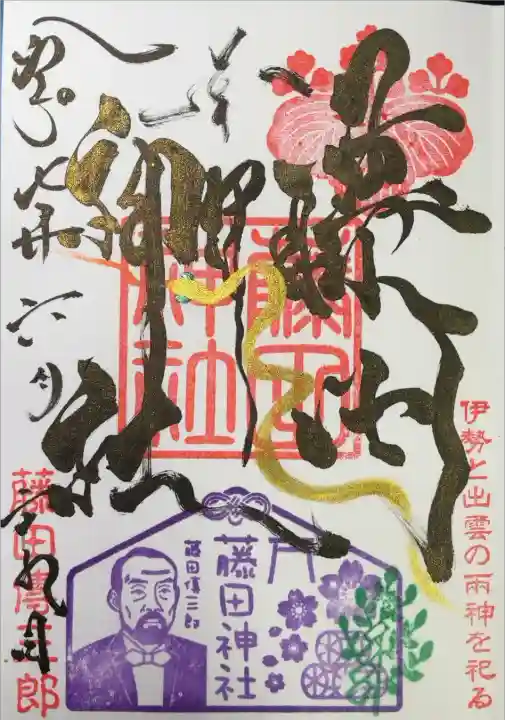 伊勢と出雲の兩神を祀る
藤田
神社
藤田
神社
六月
藤田傳三郎
藤田神社
藤田傳三郎